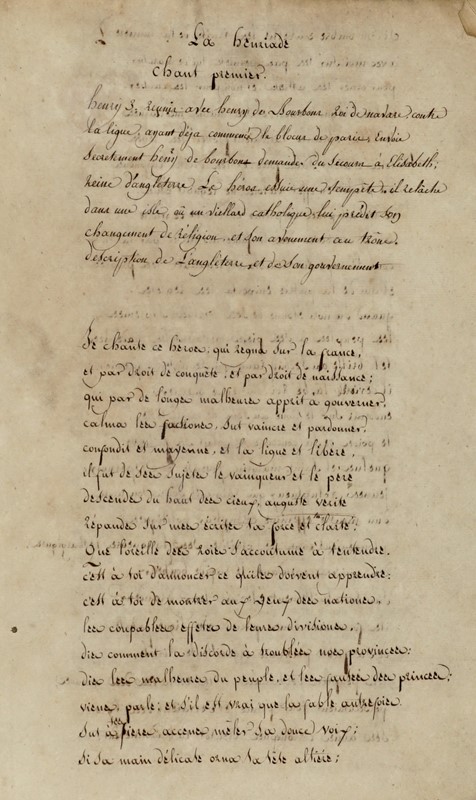 La henriade
chant premier.
henry 3, reunis avec henry de Bourbons Roi de navare, contre
la ligue, ayant deja commencé le blocus de paris, envoie
secretement henry de bourbons demander du secours à Elisabeth,
reine d'angleterre. Le héros essuie une tempête, il relâche
dans une isle, où un viellard catholique lui prédit son
changement de réligion, et son avenment au trône.
description de l'angleterre, et de son gouvernement
Je chante ce héros, qui regna sur la france,
et par droit de conquête, et par droit de naissance;
qui par de longs malheurs apprit à gouverner,
calma les factions, sut vaincre et pardonner,
confondit et mayenne, et la ligue et libére,
et fut de ses sujets le vainqueur et le pére
descends du haut des cieux, auguste verité
répands sur mes écrits ta force et ta clarté:
Que l'oreille des rois s'accoutume à t'entendre.
c'est à toi d'annoncer ce qu'ils doivent apprendre:
c'est à toi de montrer aux yeux des nations,
les coupables effets de leurs divisions.
dis comment la discorde à troublée nos provinces:
dis les malheurs du peuple, et les fautes des princes:
viens, parle; et s'il est vrai que la fable autrefois
sut à tes fiers accens mêler sa douce voix;
si sa main délicate orna ta tête altiére;